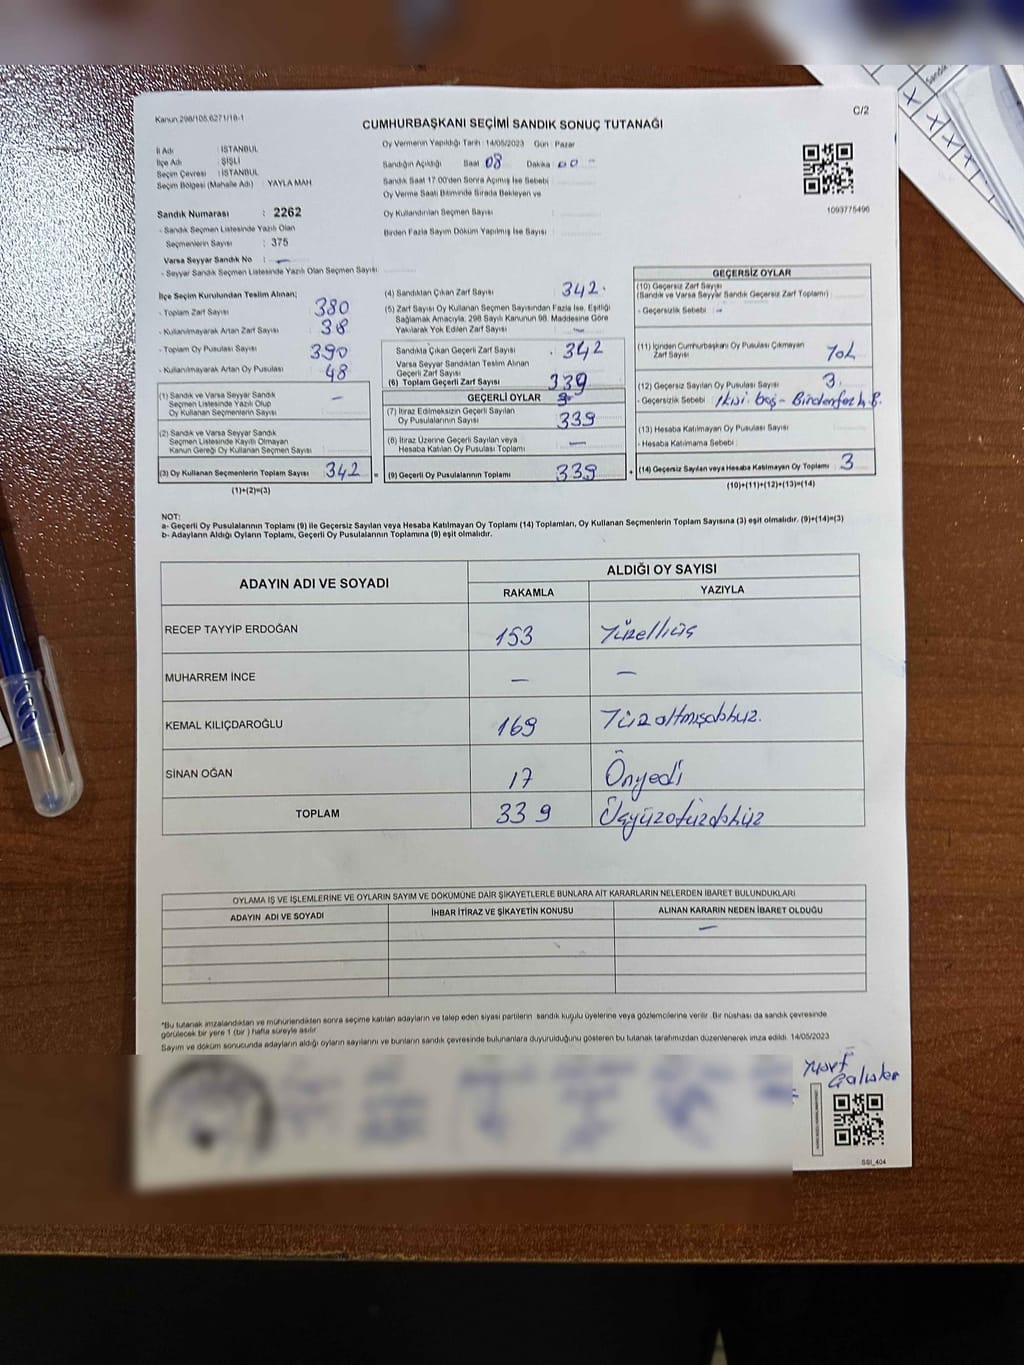 Kanun:298/105,6271/18-1
C/2
CUMHURBAŞKANI SEÇİMİ SANDIK SONUÇ TUTANAĞI
İl Adı : İSTANBUL
İlçe Adı : ŞİŞLİ
Seçim Çevresi : İSTANBUL
Seçim Bölgesi (Mahalle Adı) : YAYLA MAH
Sandık Numarası : 2262
- Sandık Seçmen Listesinde Yazılı Olan
Seçmenlerin Sayısı : 375
Varsa Seyyar Sandık No : -
- Seyyar Sandık Seçmen Listesinde Yazılı Olan Seçmen Sayısı
Oy Vermenin Yapıldığı Tarih : 14/05/2023 Gün : Pazar
Sandığın Açıldığı Saat 08 Dakika 00 -
Sandık Saat 17.00'den Sonra Açılmış İse Sebebi
Oy Verme Saati Bitiminde Sırada Bekleyen ve
Oy Kullandırılan Seçmen Sayısı :
Birden Fazla Sayım Döküm Yapılmış İse Sayısı :
1093775496
İlçe Seçim Kurulundan Teslim Alınan;
- Toplam Zarf Sayısı 380
- Kullanılmayarak Artan Zarf Sayısı 38
- Toplam Oy Pusulası Sayısı 390
- Kullanılmayarak Artan Oy Pusulası 48
(1) Sandık ve Varsa Seyyar Sandık
Seçmen Listesinde Yazılı Olup
Oy Kullanan Seçmenlerin Sayısı -
(2) Sandık ve Varsa Seyyar Sandık
Seçmen Listesinde Kayıtlı Olmayan
Kanun Gereği Oy Kullanan Seçmen Sayısı
(3) Oy Kullanan Seçmenlerin Toplam Sayısı 342 =
(1)+(2)=(3)
(4) Sandıktan Çıkan Zarf Sayısı 342
(5) Zarf Sayısı Oy Kullanan Seçmen Sayısından Fazla İse, Eşitliği
Sağlamak Amacıyla, 298 Sayılı Kanunun 98. Maddesine Göre
Yakılarak Yok Edilen Zarf Sayısı -
Sandıkta Çıkan Geçerli Zarf Sayısı 342
Varsa Seyyar Sandıktan Teslim Alınan
Geçerli Zarf Sayısı
(6) Toplam Geçerli Zarf Sayısı 339
GEÇERLİ OYLAR
(7) İtiraz Edilmeksizin Geçerli Sayılan
Oy Pusulalarının Sayısı 339
(8) İtiraz Üzerine Geçerli Sayılan veya
Hesaba Katılan Oy Pusulası Toplamı -
(9) Geçerli Oy Pusulalarının Toplamı 339 +
GEÇERSİZ OYLAR
(10) Geçersiz Zarf Sayısı
(Sandık ve Varsa Seyyar Sandık Geçersiz Zarf Toplamı)
- Geçersizlik Sebebi : -
(11) İçinden Cumhurbaşkanı Oy Pusulası Çıkmayan
Zarf Sayısı Yok
(12) Geçersiz Sayılan Oy Pusulası Sayısı 3
- Geçersizlik Sebebi : İkisi boş -
(13) Hesaba Katılmayan Oy Pusulası Sayısı
- Hesaba Katılmama Sebebi :
(14) Geçersiz Sayılan veya Hesaba Katılmayan Oy Toplamı 3
(10)+(11)+(12)+(13)=(14)
NOT:
a- Geçerli Oy Pusulalarının Toplamı (9) ile Geçersiz Sayılan veya Hesaba Katılmayan Oy Toplamı (14) Toplamları, Oy Kullanan Seçmenlerin Toplam Sayısına (3) eşit olmalıdır. (9)+(14)=(3)
b- Adayların Aldığı Oyların Toplamı, Geçerli Oy Pusulalarının Toplamına (9) eşit olmalıdır.
ADAYIN ADI VE SOYADI
ALDIĞI OY SAYISI
RAKAMLA YAZIYLA
RECEP TAYYİP ERDOĞAN 153 Yüzelliüç
MUHARREM İNCE - -
KEMAL KILIÇDAROĞLU 169 Yüzaltmışdokuz.
SİNAN OĞAN 17 Onyedi
TOPLAM 339 Üçyüzotuzdokuz
OYLAMA İŞ VE İŞLEMLERİNE VE OYLARIN SAYIM VE DÖKÜMÜNE DAİR ŞİKAYETLERLE BUNLARA AİT KARARLARIN NELERDEN İBARET BULUNDUKLARI
ADAYIN ADI VE SOYADI İHBAR İTİRAZ VE ŞİKAYETİN KONUSU ALINAN KARARIN NEDEN İBARET OLDUĞU
-
"Bu tutanak imzalandıktan ve mühürlendikten sonra seçime katılan adayların ve talep eden siyasi partilerin sandık kuşulu üyelerine veya gözlemcilerine verilir. Bir nüshası da sandık çevresinde
görülecek bir yere 1 (bir ) hafta süreyle asılır
Sayım ve döküm sonucunda adayların aldığı oyların sayılarını ve bunların sandık çevresinde bulunanlara duyurulduğunu gösteren bu tutanak tarafımızdan düzenlenerek imza edildi. 14/05/2023
Yusuf
SSI_404